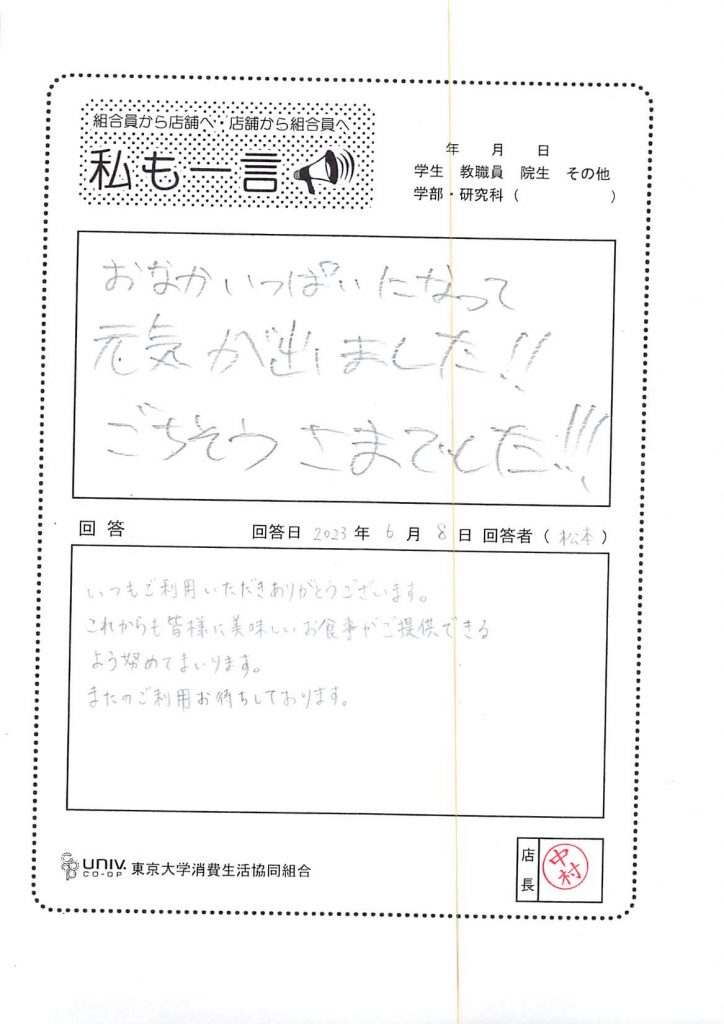 組合員から店舗へ・店舗から組合員へ
私も一言
年 月 日
学生 教職員 院生 その他
学部・研究科( )
おなかいっぱいになって
元気が出ました!!
ごちそうさまでした!!!
回答 回答日 2023年 6月 8日 回答者(松本)
いつもご利用いただきありがとうございます。
これからも皆様に美味しいお食事がご提供できる
よう努めてまいります。
またのご利用お待ちしております。
UNIV. CO-OP 東京大学消費生活協同組合
店長 中村